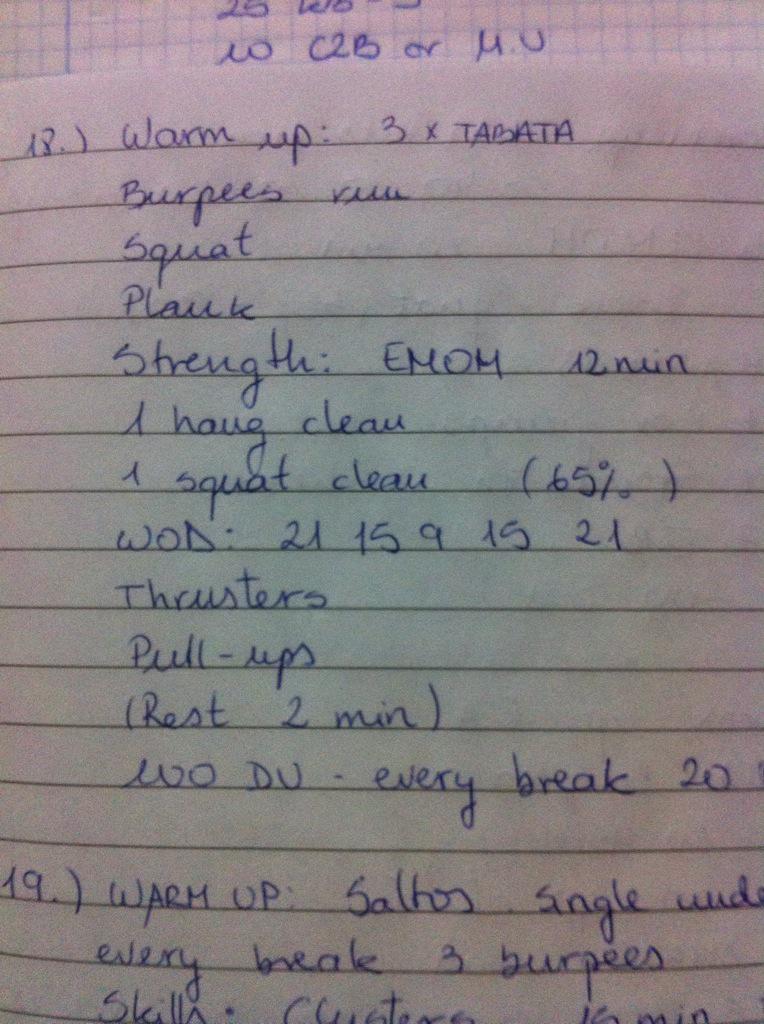 10 C2B or M.U
18.) Warm up: 3 x TABATA
Burpees run
Squat
Plank
Strength: EMOM 12 min
1 hang clean
1 squat clean (65%)
WOD: 21 15 9 15 21
Thrusters
Pull-ups
(Rest 2 min)
100 DU - every break 20
19.) WARM UP: Saltos single unde
every break 3 burpees
Skill: Clusters 15 min